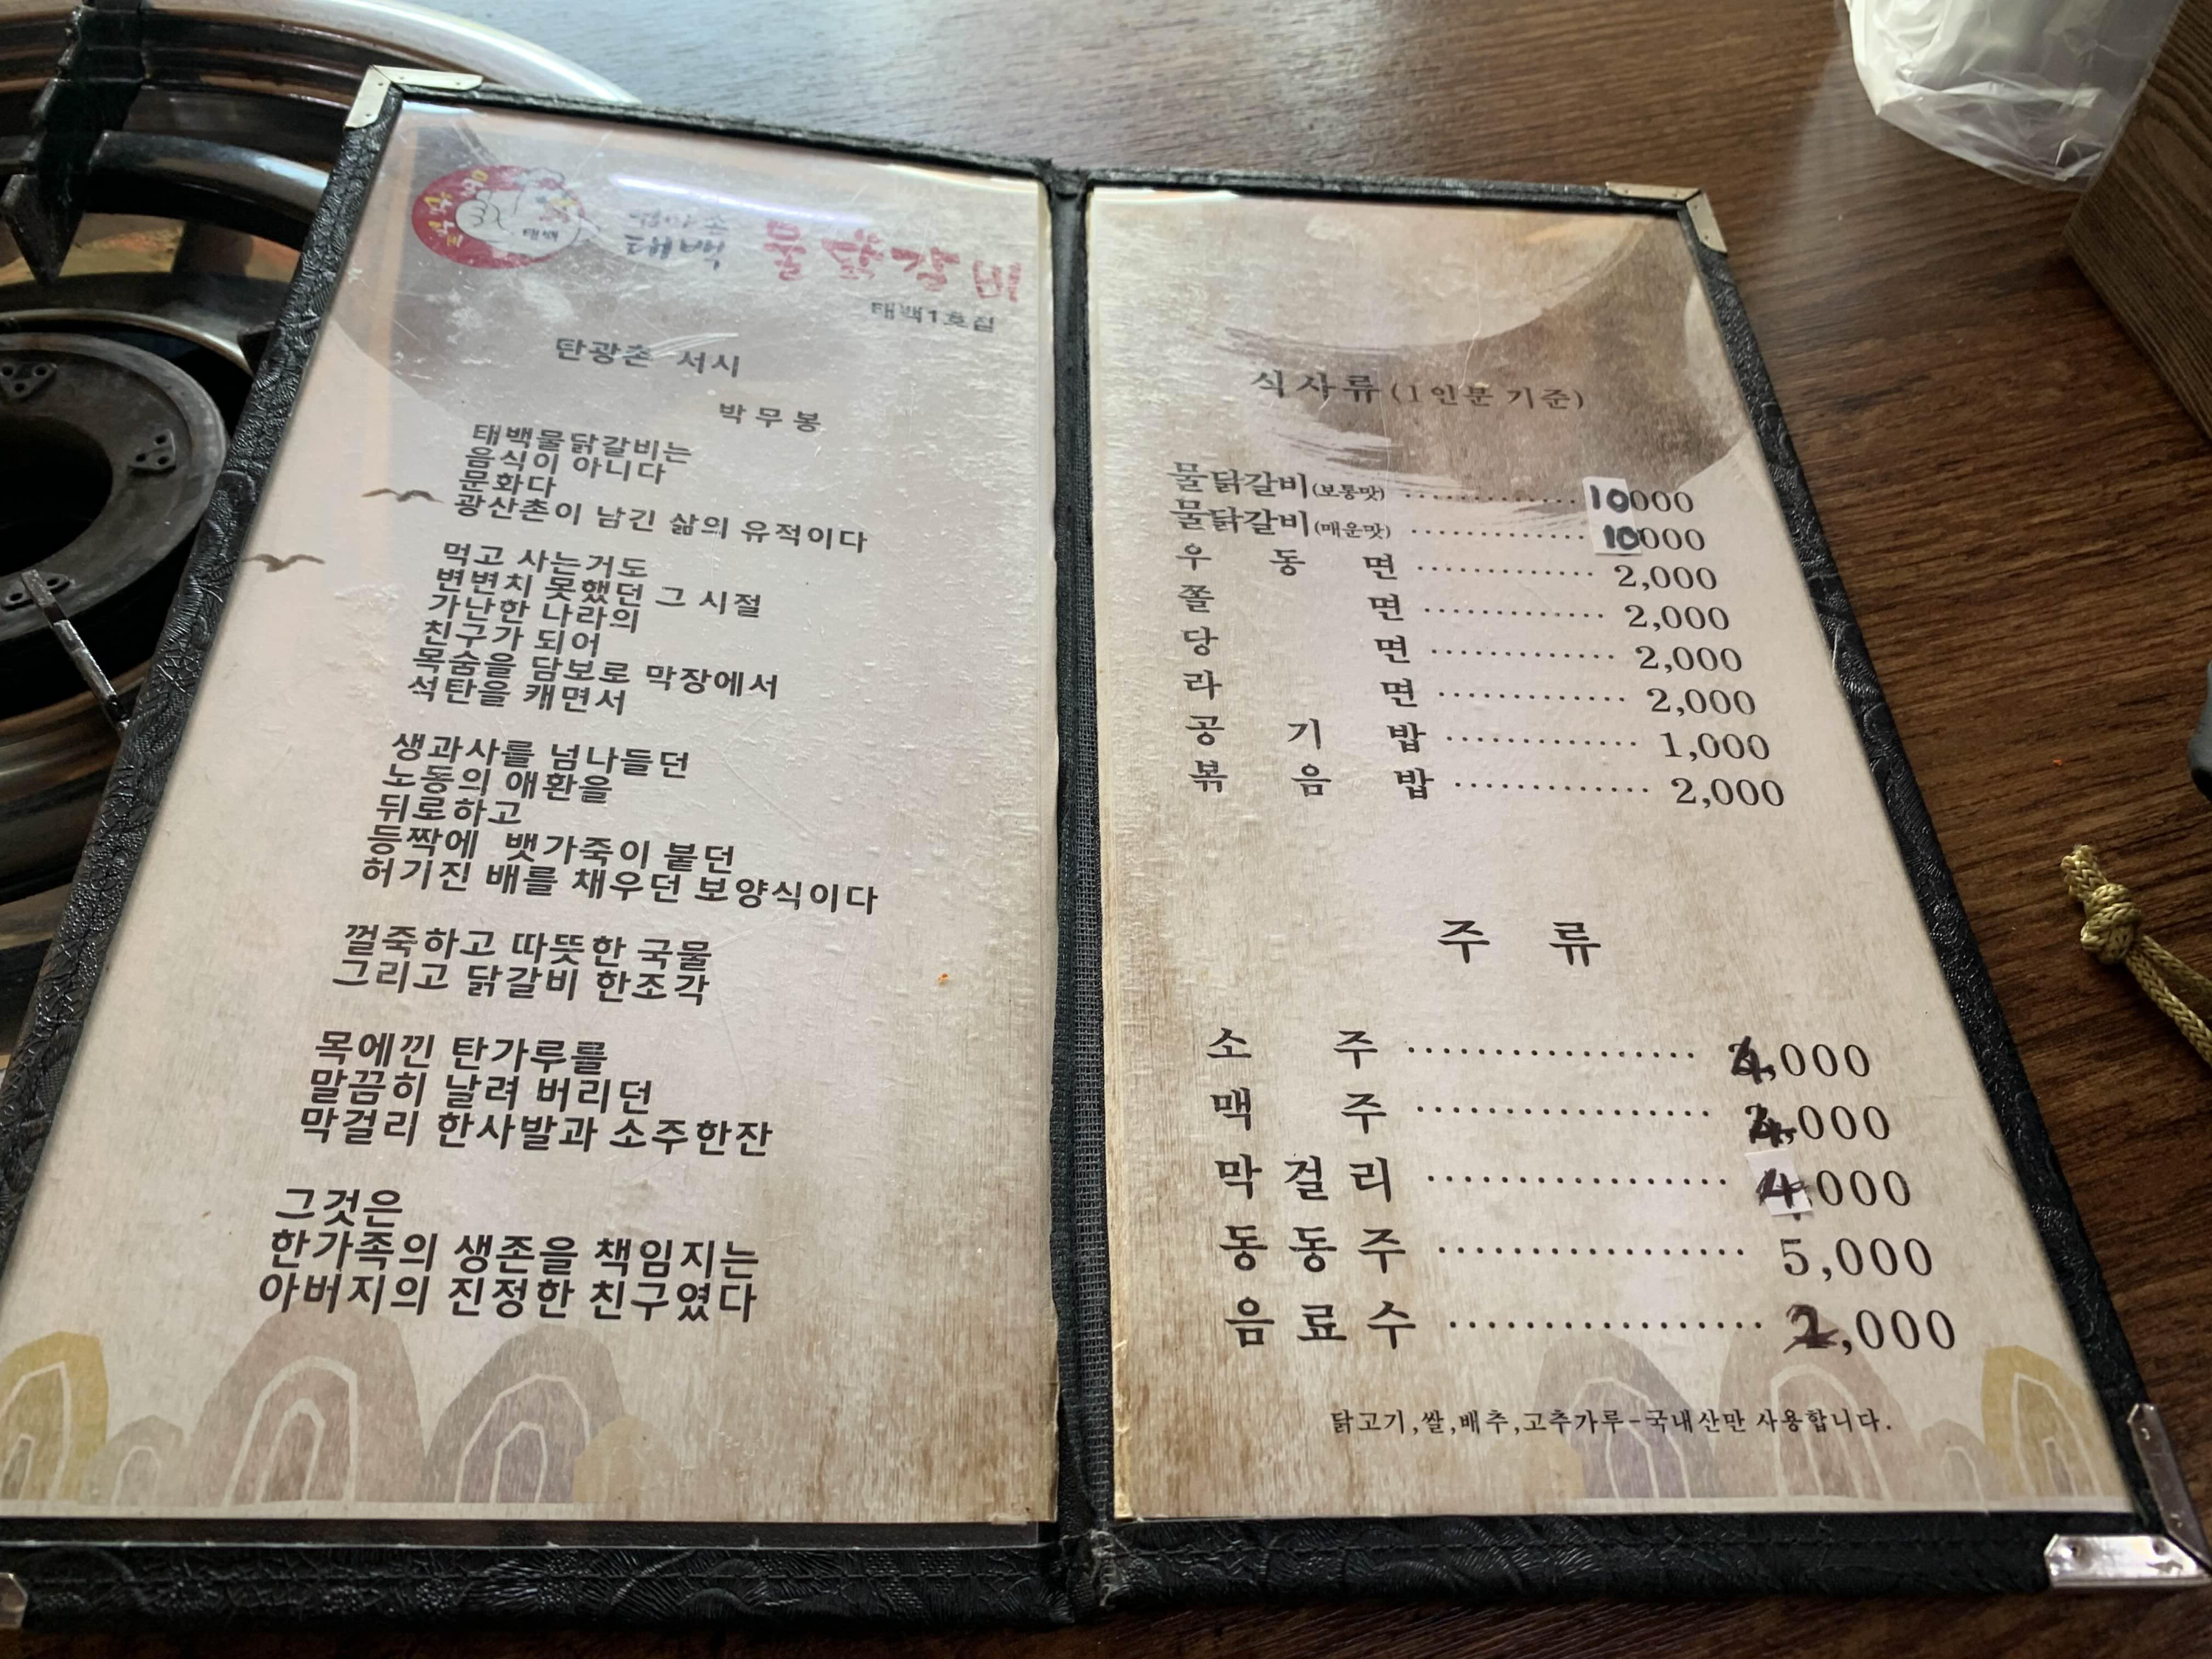 태백
엄마손
태백 물닭갈비
태백1호집
탄광촌 서시
박무봉
태백물닭갈비는
음식이 아니다
문화다
광산촌이 남긴 삶의 유적이다
먹고 사는거도
변변치 못했던 그 시절
가난한 나라의
친구가 되어
목숨을 담보로 막장에서
석탄을 캐면서
생과사를 넘나들던
노동의 애환을
뒤로하고
등짝에 뱃가죽이 붙던
허기진 배를 채우던 보양식이다
껄죽하고 따뜻한 국물
그리고 닭갈비 한조각
목에낀 탄가루를
말끔히 날려 버리던
막걸리 한사발과 소주한잔
그것은
한가족의 생존을 책임지는
아버지의 진정한 친구였다
식사류(1인분 기준)
물닭갈비(보통맛) ·············10000
물닭갈비(매운맛) ·············10000
우동면 ············· 2,000
쫄면 ············· 2,000
당면 ············· 2,000
라면 ············· 2,000
공기밥 ············· 1,000
볶음밥 ············· 2,000
주류
소주 ················· 4,000
맥주 ················· 4,000
막걸리 ················· 4000
동동주 ················· 5,000
음료수 ················· 2,000
닭고기,쌀,배추,고추가루-국내산만 사용합니다.